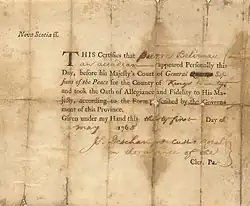 Nova Scotia ss.
THIS Certifies that Pierre Beliveau
an accadian appeared Personally this
Day, before his Majesty's Court of General Ses-
sions of the Peace for the County of Kings County
and took the Oath of Allegiance and Fidelity to His Ma-
jesty, according to the Form prescribed by the Govern-
ment of this Province.
Given under my Hand this thirty first Day of
may 1768
Cler. Pa.